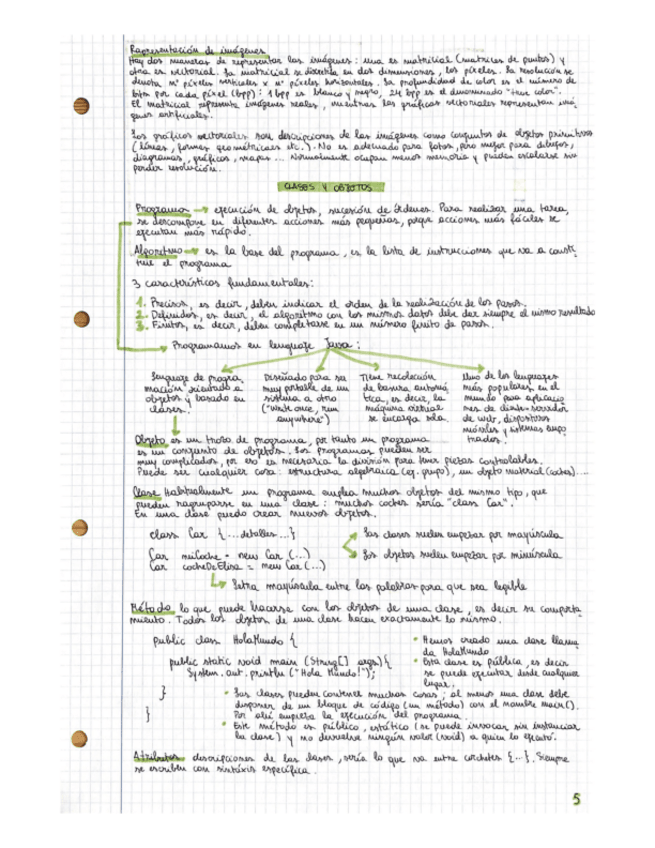 Representación de imágenes
Hay dos maneras de representar las imágenes: una es matricial (matrices de puntos) y
otra es vectorial. La matricial se discretiza en dos dimensiones, los píxeles. La resolución se
denota nº píxeles verticales x nº píxeles horizontales. La profundidad de color es el número de
bits por cada píxel (bpp): 1 bpp es blanco y negro, 24 bpp es el denominado "true color".
El matricial representa imágenes reales, mientras los gráficos vectoriales representan imá
genes artificiales.
Los gráficos vectoriales son descripciones de las imágenes como conjuntos de objetos primitivos
(líneas, formas geométricas etc.). No es adecuado para fotos, pero mejor para dibujos,
diagramas, gráficos, mapas... Normalmente ocupan menos memoria y pueden escalarse sin
perder resolución.
CLASES Y OBJETOS
Programa → ejecución de objetos, sucesión de órdenes. Para realizar una tarea,
se descompone en diferentes acciones más pequeñas, porque acciones más fáciles se
ejecutan más rápido.
Algoritmo → es la base del programa, es la lista de instrucciones que va a consti
tuir el programa
3 características fundamentales:
1. Precisos, es decir, deben indicar el orden de la realización de los pasos.
2. Definidos, es decir, el algoritmo con los mismos datos debe dar siempre el mismo resultado
3. Finitos, es decir, deben completarse en un número finito de pasos.
Programamos en lenguaje Java:
Lenguaje de progra
mación orientado a
objetos y basado en
clases.
Diseñado para ser
muy portable de un
sistema a otro
("write once, run
anywhere")
Tiene recolección
de basura automá
tica, es decir, la
máquina virtual
se encarga sola.
Uno de los lenguajes
más populares en el
mundo para aplicacio
nes de cliente-servidor
de web, dispositivos
móviles y sistemas empo
trados.
Objeto es un trozo de programa, por tanto un programa
es un conjunto de objetos. Los programas pueden ser
muy complicados, por eso es necesaria la división para tener piezas controlables.
Puede ser cualquier cosa: estructura algebraica (ej. grupo), un objeto material (coches)....
Clase Habitualmente un programa emplea muchos objetos del mismo tipo, que
pueden reagruparse en una clase: muchos coches sería "class Car".
En una clase puedo crear nuevos objetos.
class Car {...detalles...}
Las clases suelen empezar por mayúscula
Car miCoche = new Car (...)
Los objetos suelen empezar por minúscula
Car cocheDeElisa = new Car (...)
Letra mayúscula entre las palabras para que sea legible
Método lo que puede hacerse con los objetos de una clase, es decir su comporta
miento. Todos los objetos de una clase hacen exactamente lo mismo.
public class HolaMundo {
public static void main (String[] args){
System.out.println ("Hola Mundo!");
}
}
• Hemos creado una clase llama
da HolaMundo
• Esta clase es pública, es decir
se puede ejecutar desde cualquier
lugar.
• Las clases pueden contener muchas cosas; al menos una clase debe
disponer de un bloque de código (un método) con el nombre main().
Por ahí empieza la ejecución del programa.
• Este método es público, estático (se puede invocar sin instanciar
la clase) y no devuelve ningún valor (void) a quien lo ejecutó.
Atributos descripciones de las clases, sería lo que va entre corchetes {...}. Siempre
se escriben con sintaxis específica.
5